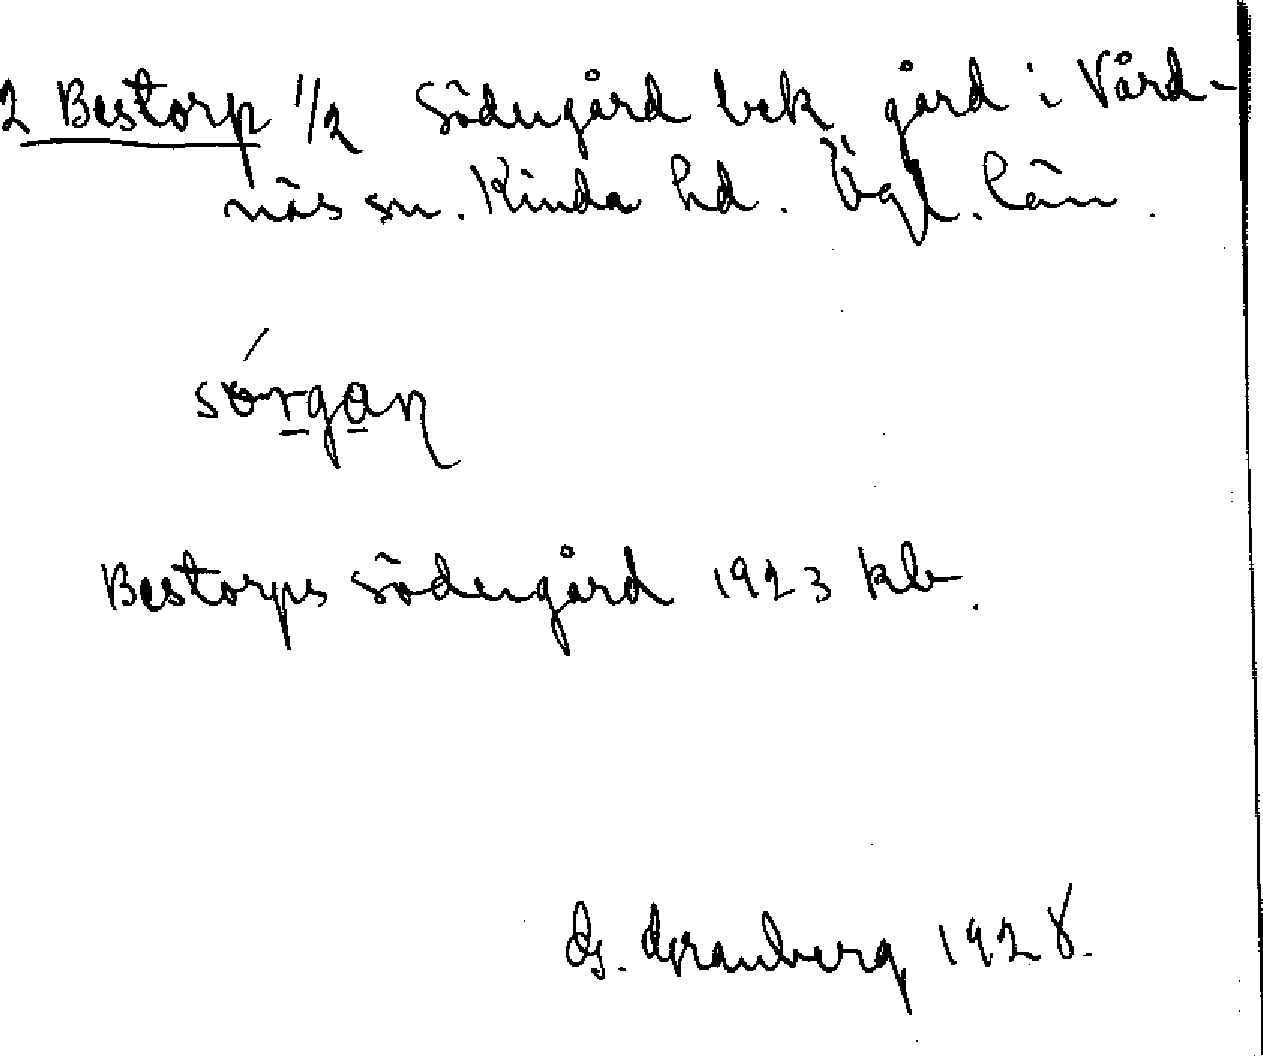 2 Bestorp 1/2 Södergård bek gård i Vård-
näs sn. Kinda hd. Ögl. län.
Bestorps södergård 1923 kb.
G. Granberg 1928.